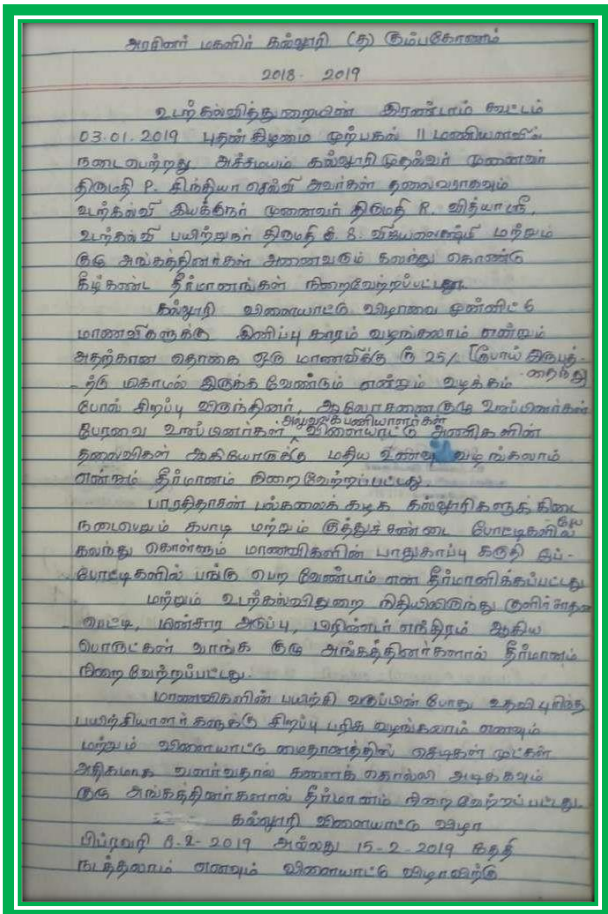 அரசினர் மகளிர் கல்லூரி (த) கும்பகோணம்
2018 - 2019
உடற்கல்வித்துறையின் இரண்டாம் கூட்டம்
03.01.2019 புதன்கிழமை முற்பகல் 11 மணியளவில்
நடைபெற்றது அச்சமயம் கல்லூரி முதல்வர் முனைவர்
திருமதி P. சிந்தியா செல்வி அவர்கள் தலைவராகவும்
உடற்கல்வி இயக்குநர் முனைவர் திருமதி R. வித்யாஸ்ரீ,
உடற்கல்வி பயிற்றுநர் திருமதி S. விஜயலெக்ஷ்மி மற்றும்
குழு அங்கத்தினர்கள் அனைவரும் கலந்து கொண்டு
கீழ்கண்ட தீர்மானங்கள் நிறைவேற்றப்பட்டது.
கல்லூரி விளையாட்டு விழாவை முன்னிட்டு
மாணவிகளுக்கு இனிப்பு காரம் வழங்கலாம் என்றும்
அதற்கான தொகை ஒரு மாணவிக்கு ரூ 25/- (ரூபாய் இருபத்-
-தைந்து)
-க்கு மிகாமல் இருக்க வேண்டும் என்றும் வழக்கம்
போல் சிறப்பு விருந்தினர், ஆலோசனைகுழு உறுப்பினர்கள்
அலுவலக பணியாளர்கள்
பேரவை உறுப்பினர்கள் விளையாட்டு அணிகளின்
தலைவிகள் ஆகியோருக்கு மதிய உணவு வழங்கலாம்
என்றும் தீர்மானம் நிறைவேற்றப்பட்டது.
பாரதிதாசன் பல்கலைக் கழக கல்லூரிகளுக்கிடையே
நடைபெறும் கபாடி மற்றும் குத்துச்சண்டை போட்டிகளில்
கலந்து கொள்ளும் மாணவிகளின் பாதுகாப்பு கருதி இப்-
போட்டிகளில் பங்கு பெற வேண்டாம் என தீர்மானிக்கப்பட்டது
மற்றும் உடற்கல்விதுறை நிதியிலிருந்து குளிர்சாதன
பெட்டி, மின்சார அடுப்பு, பிரிண்டர் எந்திரம் ஆகிய
பொருட்கள் வாங்க குழு அங்கத்தினர்களால் தீர்மானம்
நிறைவேற்றப்பட்டது.
மாணவிகளின் பயிற்சி வகுப்பின் போது உதவி புரிந்த
பயிற்சியாளர்களுக்கு சிறப்பு பரிசு வழங்கலாம் எனவும்
மற்றும் விளையாட்டு மைதானத்தில் செடிகள் முட்கள்
அதிகமாக வளர்வதால் களைக் கொல்லி அடிக்கவும்
குழு அங்கத்தினர்களால் தீர்மானம் நிறைவேற்றப்பட்டது.
கல்லூரி விளையாட்டு விழா
பிப்ரவரி 8-2-2019 அல்லது 15-2-2019 தேதி
நடத்தலாம் எனவும் விளையாட்டு விழாவிற்கு